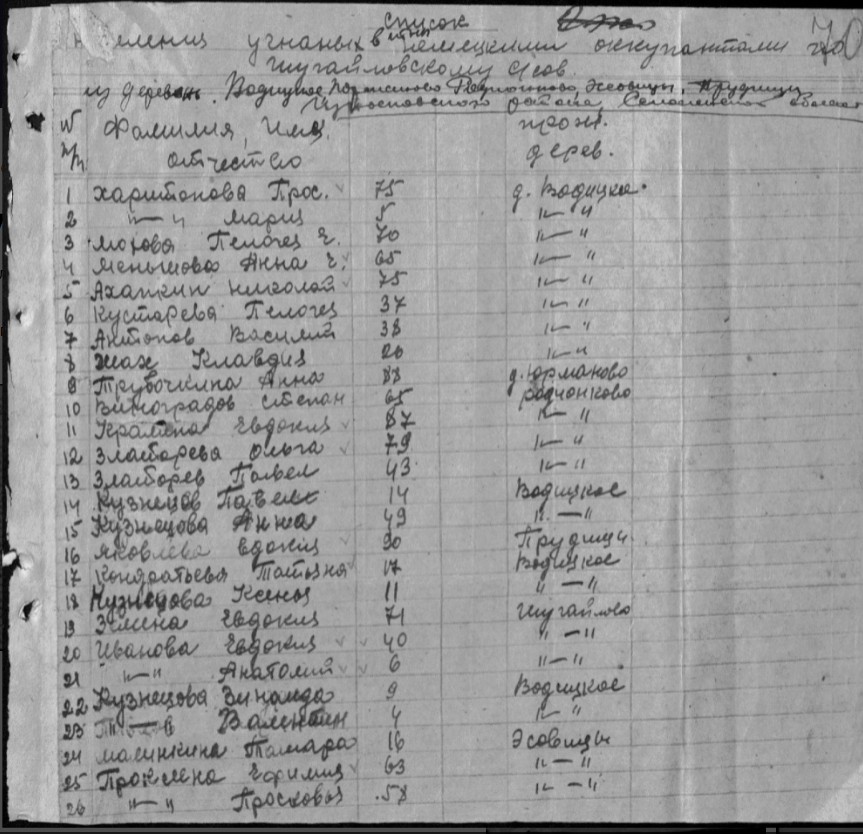 список
населения угнаных в немецкими оккупантами по
Шугайловскому с/сов.
из деревень. Водицкое Юрманово Родионково, Эсовицы, Прудищи
района, Смоленской области
N п/п Фамилия, Имя, отчество прож. дерев.
1 Харитонова Прос. 75 д. Водицкое
2 "—" Мария 5 "—"
3 Мохова Пелогея Е. 70 "—"
4 Меньшова Анна Е. 65 "—"
5 Ахапкин Николай 75 "—"
6 Кустарева Пелогея 37 "—"
7 Антонов Василий 38 "—"
8 Жах Клавдия 20 "—"
9 Трубочкина Анна 88 д. Юрманово
10 Виноградов Степан 65 родчонково
11 Евдокия 87 "—"
12 Златарева Ольга 79 "—"
13 Златорев Павел 43 "—"
14 Кузнецов Павел 14 Водицкое
15 Кузнецова Анна 49 "—"
16 Яковлева вдокия 90 Прудищи
17 Кондратьева Татьяна 17 Водицкое
18 Кузнецова Ксения 11 "—"
19 Зенина Евдокия 71 Шугайлово
20 Иванова Евдокия 40 "—"
21 "—" Анатолий 6 "—"
22 Кузнецова Зинаида 9 Водицкое
23 Валентин 4 "—"
24 Масинкина Тамара 16 Эсовицы
25 Ефимия 63 "—"
26 "—" Просковья 58 "—"
70